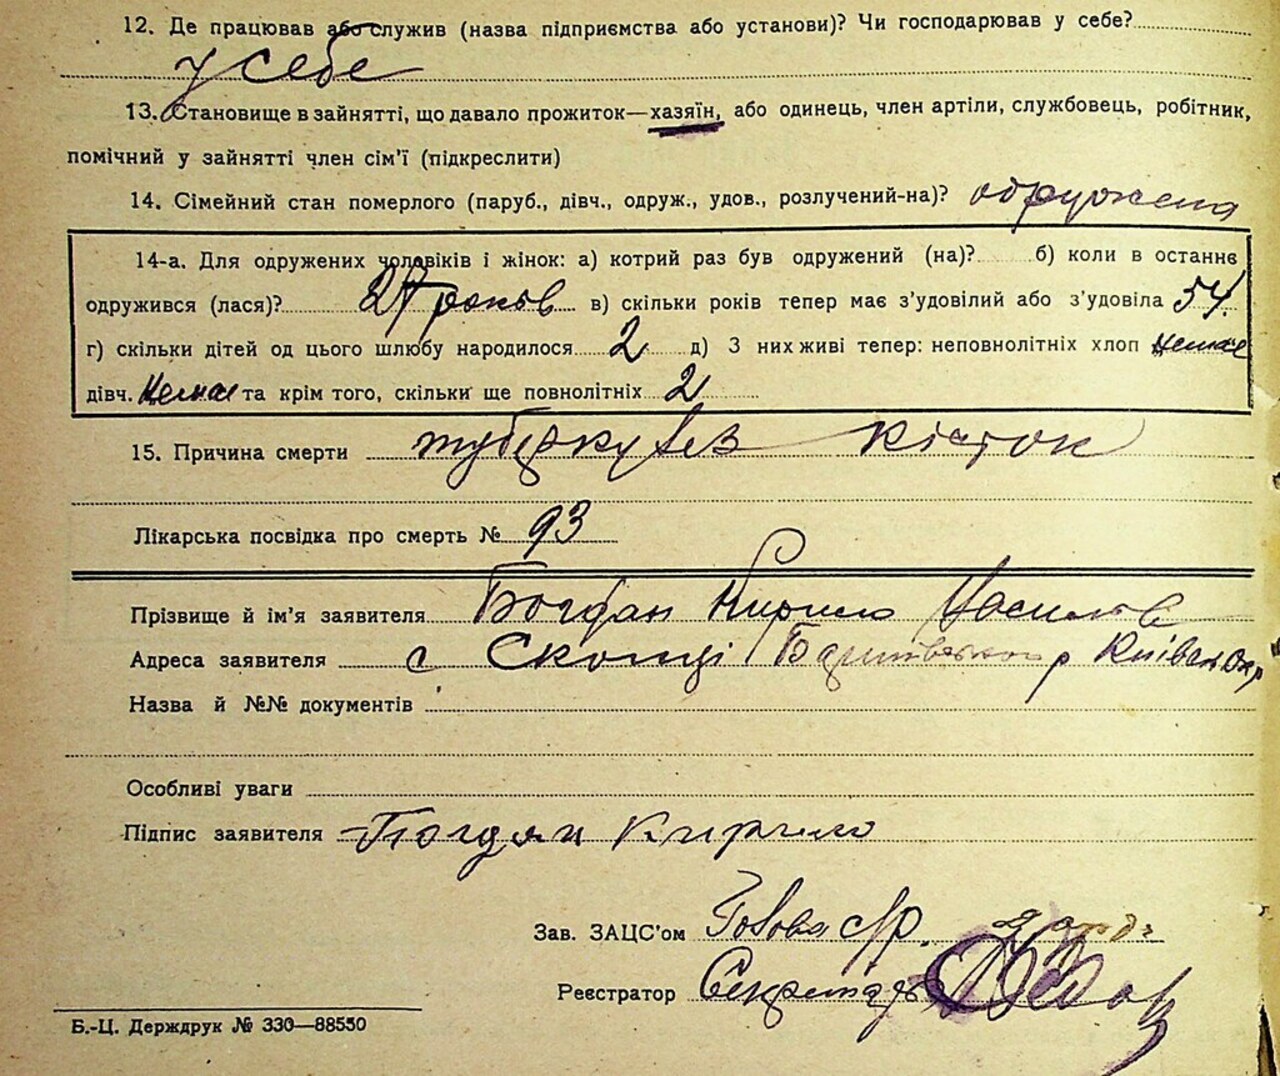 12. Де працював або служив (назва підприємства або установи)? Чи господарював у себе?
у себе
13. Становище в зайнятті, що давало прожиток—хазяїн, або одинець, член артілі, службовець, робітник,
помічний у зайнятті член сім'ї (підкреслити)
14. Сімейний стан померлого (паруб., дівч., одруж., удов., розлучений-на)? одружена
14-а. Для одружених чоловіків і жінок: а) котрий раз був одружений (на)? б) коли в останнє
одружився (лася)? 27 років в) скільки років тепер має з'удовілий або з'удовіла 54
г) скільки дітей од цього шлюбу народилося 2 д) З них живі тепер: неповнолітніх хлоп немає
дівч. немає та крім того, скільки ще повнолітніх 2
15. Причина смерти туберкульоз кісток
Лікарська посвідка про смерть № 93
Прізвище й ім'я заявителя Богдан Кирило
Адреса заявителя с Скопці Київськ Окр
Назва й №№ документів
Особливі уваги
Підпис заявителя Богдан Кирило
Зав. ЗАЦС'ом Голова с/р.
Реєстратор Секретарь
Б.-Ц. Держдрук № 330—88550